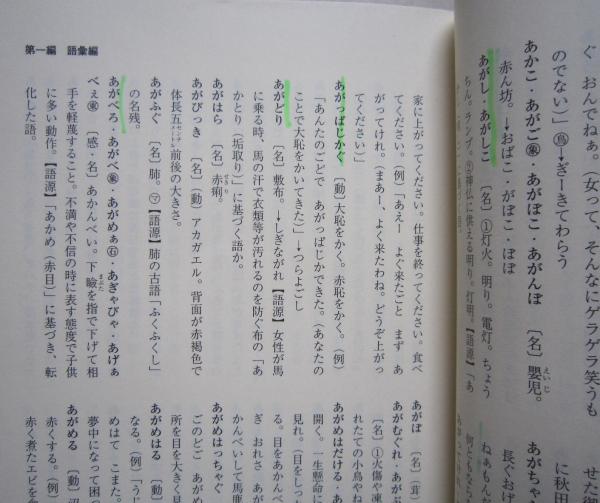 ぐ おんでねぁ。(女って、そんなにゲラゲラ笑うも
のでない)」㊇→ぎーきてわらう
あかこ・あがご㊇・あがぼこ・あがんぼ 〔名〕嬰児。
えいじ
赤ん坊。→おばこ・がぼこ・ぼぼ
あがし・あがしこ 〔名〕①灯火。明り。電灯。ちょう
ちん。ランプ。②神仏に供える明り。灯明。【語源】「あ
第一編 語彙編
家に上がってください。仕事を終ってください。食べ
てください。(例)「あえー よく来たごと まず あ
がってけれ。(まあー、よく来たわね。どうぞ上がっ
てください)」
あがっぱじかく 〔動〕大恥をかく。赤恥をかく。(例)
「あんたのごどで あがっぱじかできた。(あなたの
ことで大恥をかいてきた)」→つらよごし
あがどり 〔名〕敷布。→しぎながれ【語源】女性が馬
に乗る時、馬の汗で衣類等が汚れるのを防ぐ布の「あ
かとり(垢取り)」に基づく語か。
あがはら 〔名〕赤痢。
せきり
あがびっき 〔名〕〔動〕アカガエル。背面が赤褐色で
体長五センチメートル前後の大きさ。
あがふぐ 〔名〕肺。㋮【語源】肺の古語「ふくふくし」
の名残。
あがべろ・あがべ
・あがめぁ
・あぎゃびゃ・あげぁ
べぇ
〔感・名〕あかんべい。下瞼を指で下げて相
まぶた
手を軽蔑すること。不満や不信の時に表す態度で子供
に多い動作。【語源】「あかめ(赤目)」に基づき、転
化した語。
あがぼ 〔名〕(茸)
あがむぐれ・あが
〔名〕①火傷や凍
れたての小鳥やね
あがめはだける・あ
開く。一生懸命に
見れ。(目をしっ
る。目をあかんべ
ぎ おれさ あが
かんべいして馬鹿
あがめはっちゃぐ
ごのごど あがめ
所を目を大きく見
あがめはる 〔動〕
なる。(例)「うー
めはて こまた
夢中になって困
あがめる 〔動〕
赤くする。(例)
赤く煮たエビを
せた御
に秋田
長ぐお
あがちん